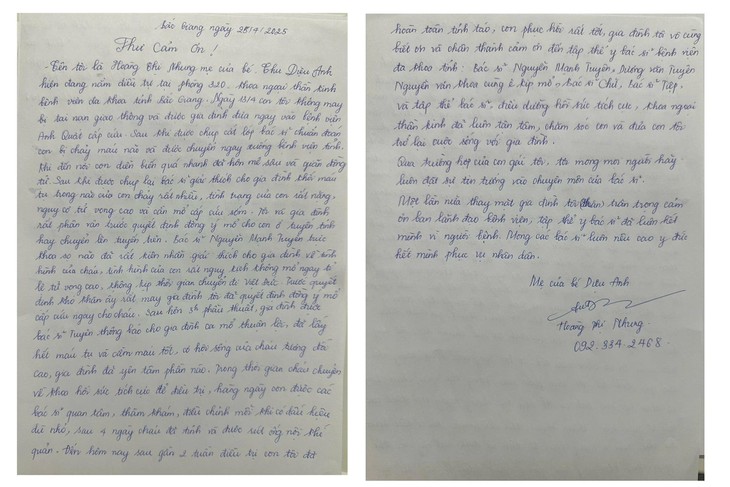 Bắc Giang ngày 25/4/2025
Thư Cảm Ơn!
- Tên tôi là Hoàng Thị Nhung mẹ của bé: Chu Diệu Anh
hiện đang nằm điều trị tại phòng 320. Khoa ngoại thần kinh
bệnh viện đa khoa tỉnh Bắc Giang. Ngày 13/4 con tôi không may
bị tai nạn giao thông và được gia đình đưa ngay vào bệnh viện
Anh Quất cấp cứu. Sau khi được chụp cắt lớp bác sĩ chuẩn đoán
con bị chảy máu não và được chuyển ngay xuống bệnh viện tỉnh.
Khi đến nơi con diễn biến quá nhanh đã hôn mê sâu và giãn đồng
tử. Sau khi được chụp lại bác sĩ giải thích cho gia đình khối máu
tụ trong não của con chảy rất nhiều, tình trạng của con rất nặng,
nguy cơ tử vong cao và cần mổ cấp cứu sớm. Tôi và gia đình
rất phân vân trước quyết định đồng ý mổ cho con ở tuyến tỉnh
hay chuyển lên tuyến trên. Bác sĩ Nguyễn Mạnh Truyền bước
theo sơ não đã rất kiên nhẫn giải thích cho gia đình về tình
hình của cháu, tình hình của con rất nguy kịch không mổ ngay tỉ
lệ tử vong cao, không kịp thời gian chuyển đi Việt Đức. Trước quyết
định khó khăn ấy rất may gia đình tôi đã quyết định đồng ý mổ
cấp cứu ngay cho cháu. Sau hơn 3h phẫu thuật, gia đình được
bác sĩ Truyền thông báo cho gia đình ca mổ thuận lợi, đã lấy
hết máu tụ và cầm máu tốt, có hồi sống của cháu tương đối
cao, gia đình đã yên tâm phần nào. Trong thời gian cháu chuyển
về khoa hồi sức tích cực để điều trị, hàng ngày con được các
bác sĩ quan tâm, thăm khám, điều chỉnh mỗi khi có dấu hiệu
dù nhỏ, sau 4 ngày cháu đã tỉnh và được rút ống nội khí
quản. Đến hôm nay sau gần 2 tuần điều trị con tôi đã
hoàn toàn tỉnh táo, con phục hồi rất tốt, gia đình tôi vô cùng
biết ơn và chân thành cảm ơn đến tập thể y bác sĩ bệnh viện
đa khoa tỉnh: Bác sĩ Nguyễn Mạnh Truyền, Dương Văn Tuyên
Nguyễn Văn Khoa cùng ê kíp mổ, Bác sĩ Chử, Bác sĩ Tiệp.
và tập thể bác sĩ, điều dưỡng hồi sức tích cực, khoa ngoại
thần kinh đã luôn tận tâm, chăm sóc con và đưa con tôi
trở lại cuộc sống với gia đình.
Qua trường hợp của con gái tôi, tôi mong mọi người hãy
luôn đặt sự tin tưởng vào chuyên môn của bác sĩ.
Một lần nữa thay mặt gia đình tôi trân trọng cảm
ơn ban lãnh đạo bệnh viện, tập thể y bác sĩ đã luôn hết
mình vì người bệnh. Mong các bác sĩ luôn nêu cao y đức
hết mình phục vụ nhân dân.
Mẹ của bé Diệu Anh
Hoàng Thị Nhung.
092.334.2468.